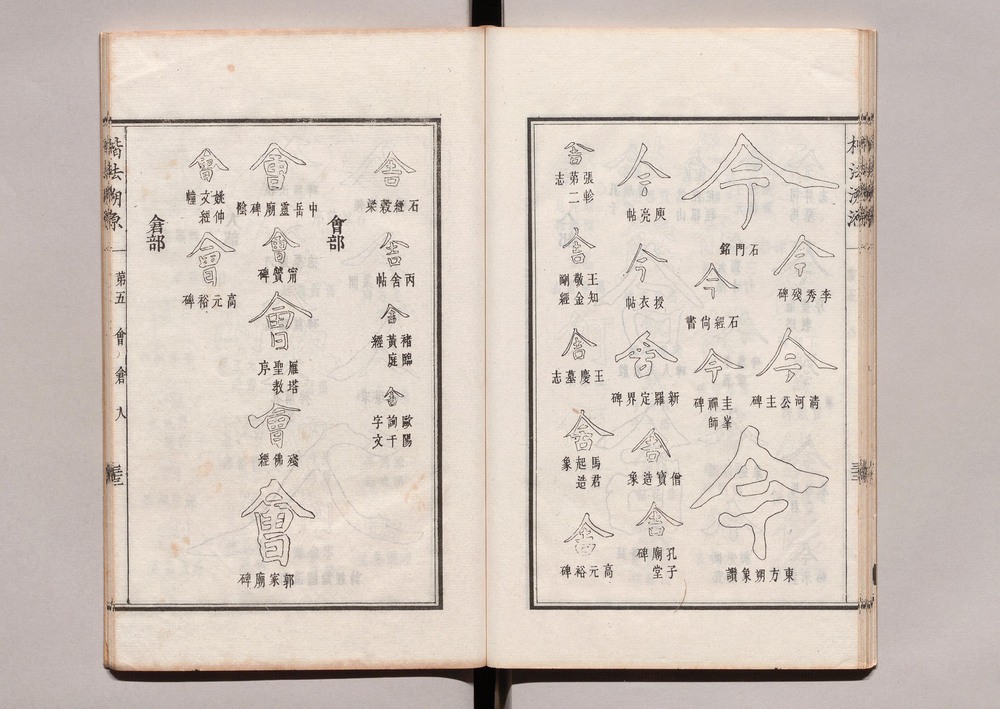 今
李秀殘碑
今
清河公主碑
今
石門銘
今
石經尙書
今
圭峯禪師碑
今
東方朔象讚
今
庾亮帖
今
授衣帖
舍
新羅定界碑
舍
僧寶造象
舍
孔子廟堂碑
舍
張軫第二志
舍
王知敬金剛經
舍
王慶墓志
舍
馬君起造象
舍
高元裕碑
舍
石經穀梁
舍
丙舍帖
舍
褚臨黃庭經
舍
歐陽詢千字文
會部
會
中岳靈廟碑陰
會
甯贊碑
會
雁塔聖教序
會
殘佛經
會
郭家廟碑
會
姚仲文經幢
會
高元裕碑
倉部
楷法溯源 第五 會 倉 人